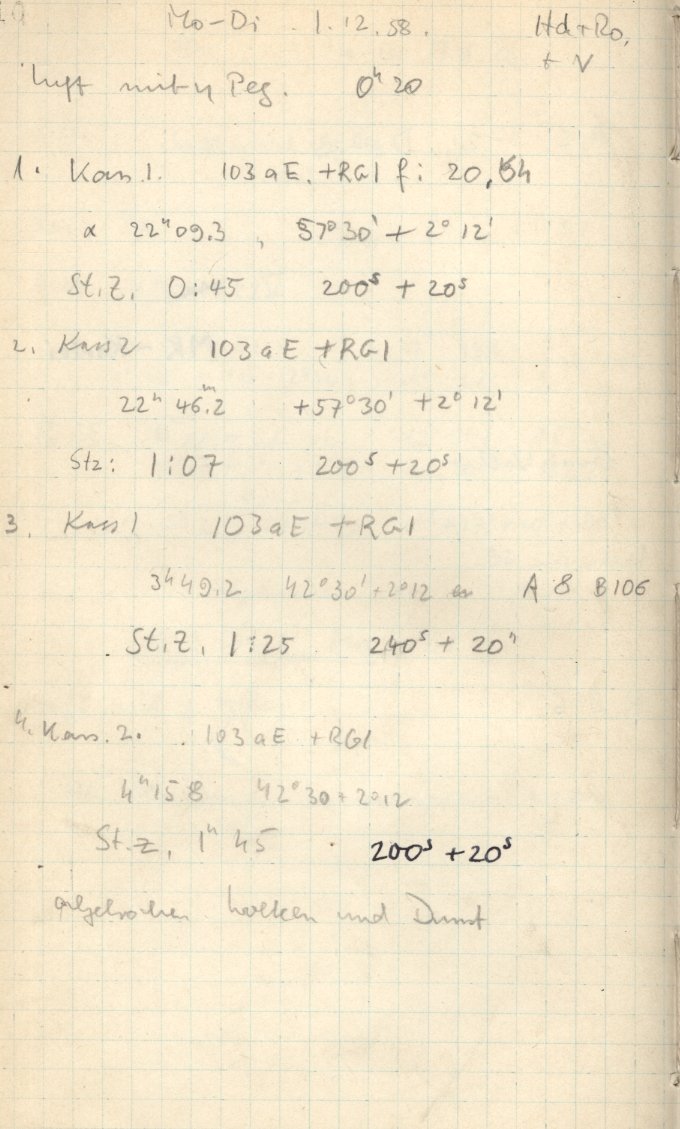 Mo-Di 1.12.58. Hd+Ro,
+ V
Luft mit η Peg. 0ʰ 20
1. Kass 1. 103aE. +RG1 f: 20,54
α 22ʰ09.3, 57°30' + 2° 12'
St.Z. 0:45 200ˢ + 20ˢ
2. Kass 2 103aE +RG1
22ʰ 46.ᵐ2 +57°30' +2° 12'
Stz: 1:07 200ˢ +20ˢ
3. Kass 1 103aE +RG1
3ʰ49.2 42°30'+2°12 A 8 B106
St.Z. 1:25 240ˢ + 20ˢ
4. Kass. 2. 103aE +RG1
4ʰ15.8 42°30+2°12
St.z. 1ʰ45 200ˢ +20ˢ
abgebrochen wolken und Dunst